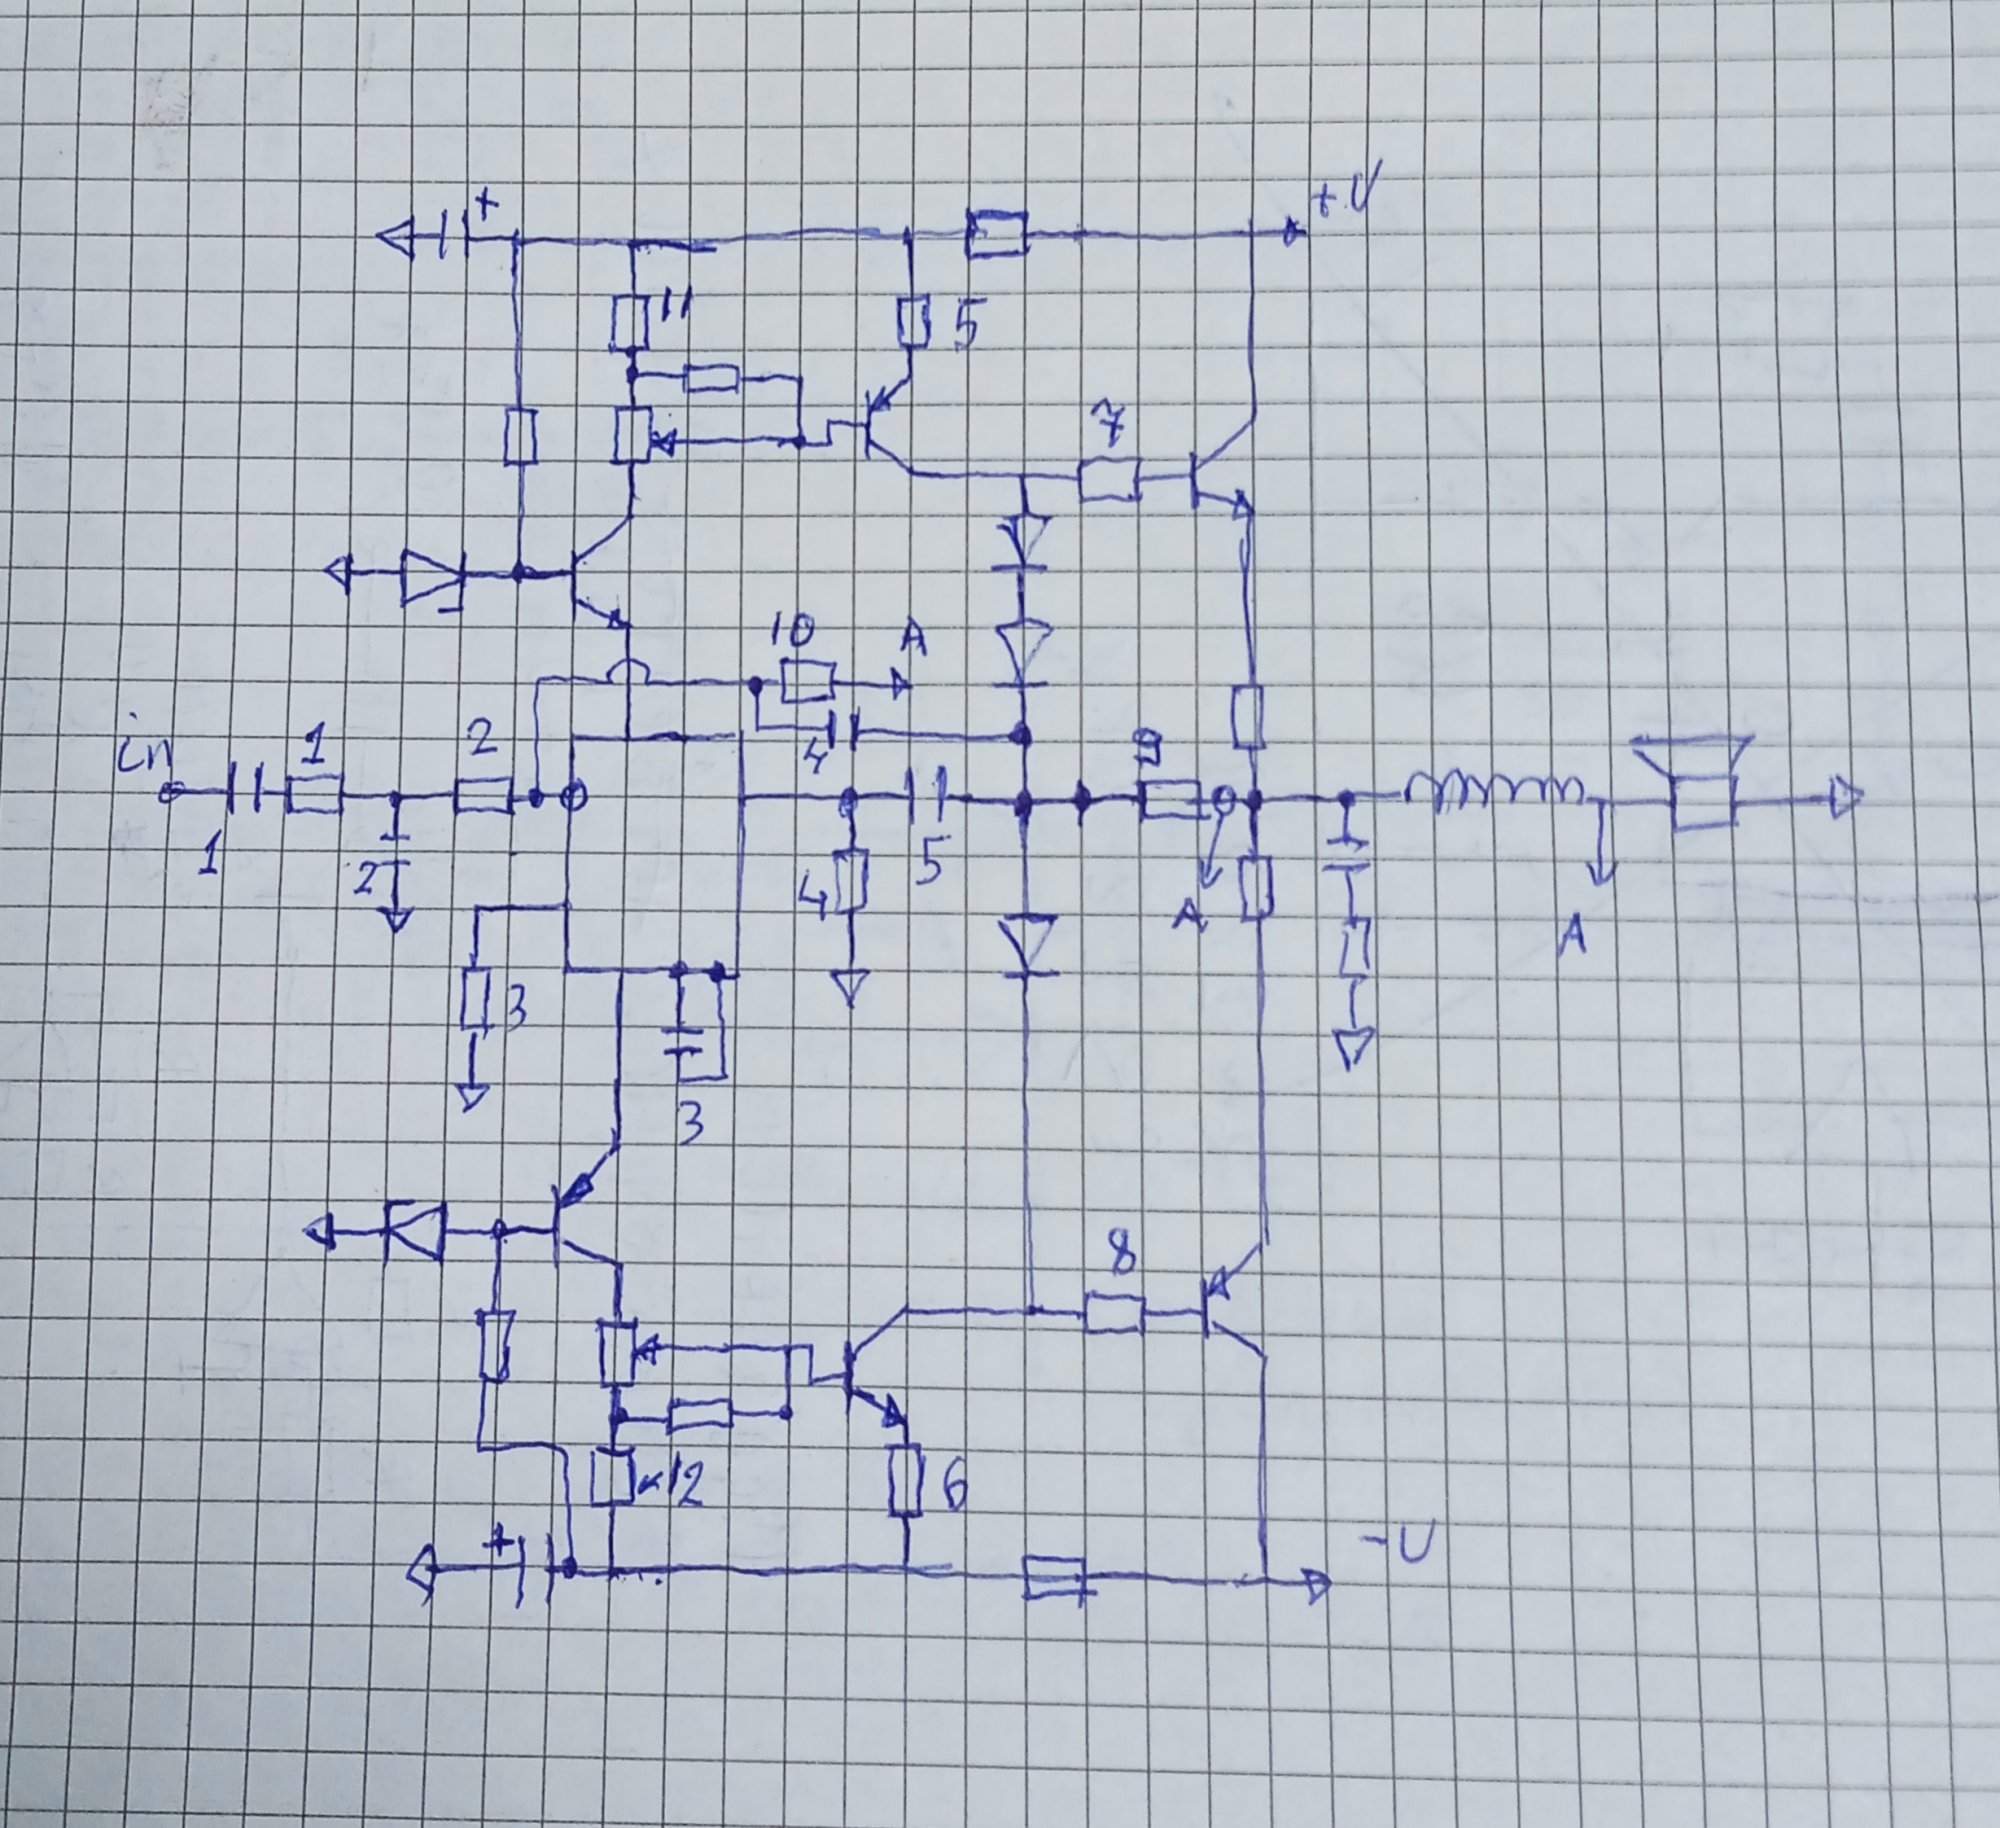 +
+U
11
5
7
10
A
in
1
2
9
4
1
2
5
4
A
A
3
3
8
12
6
+
-U